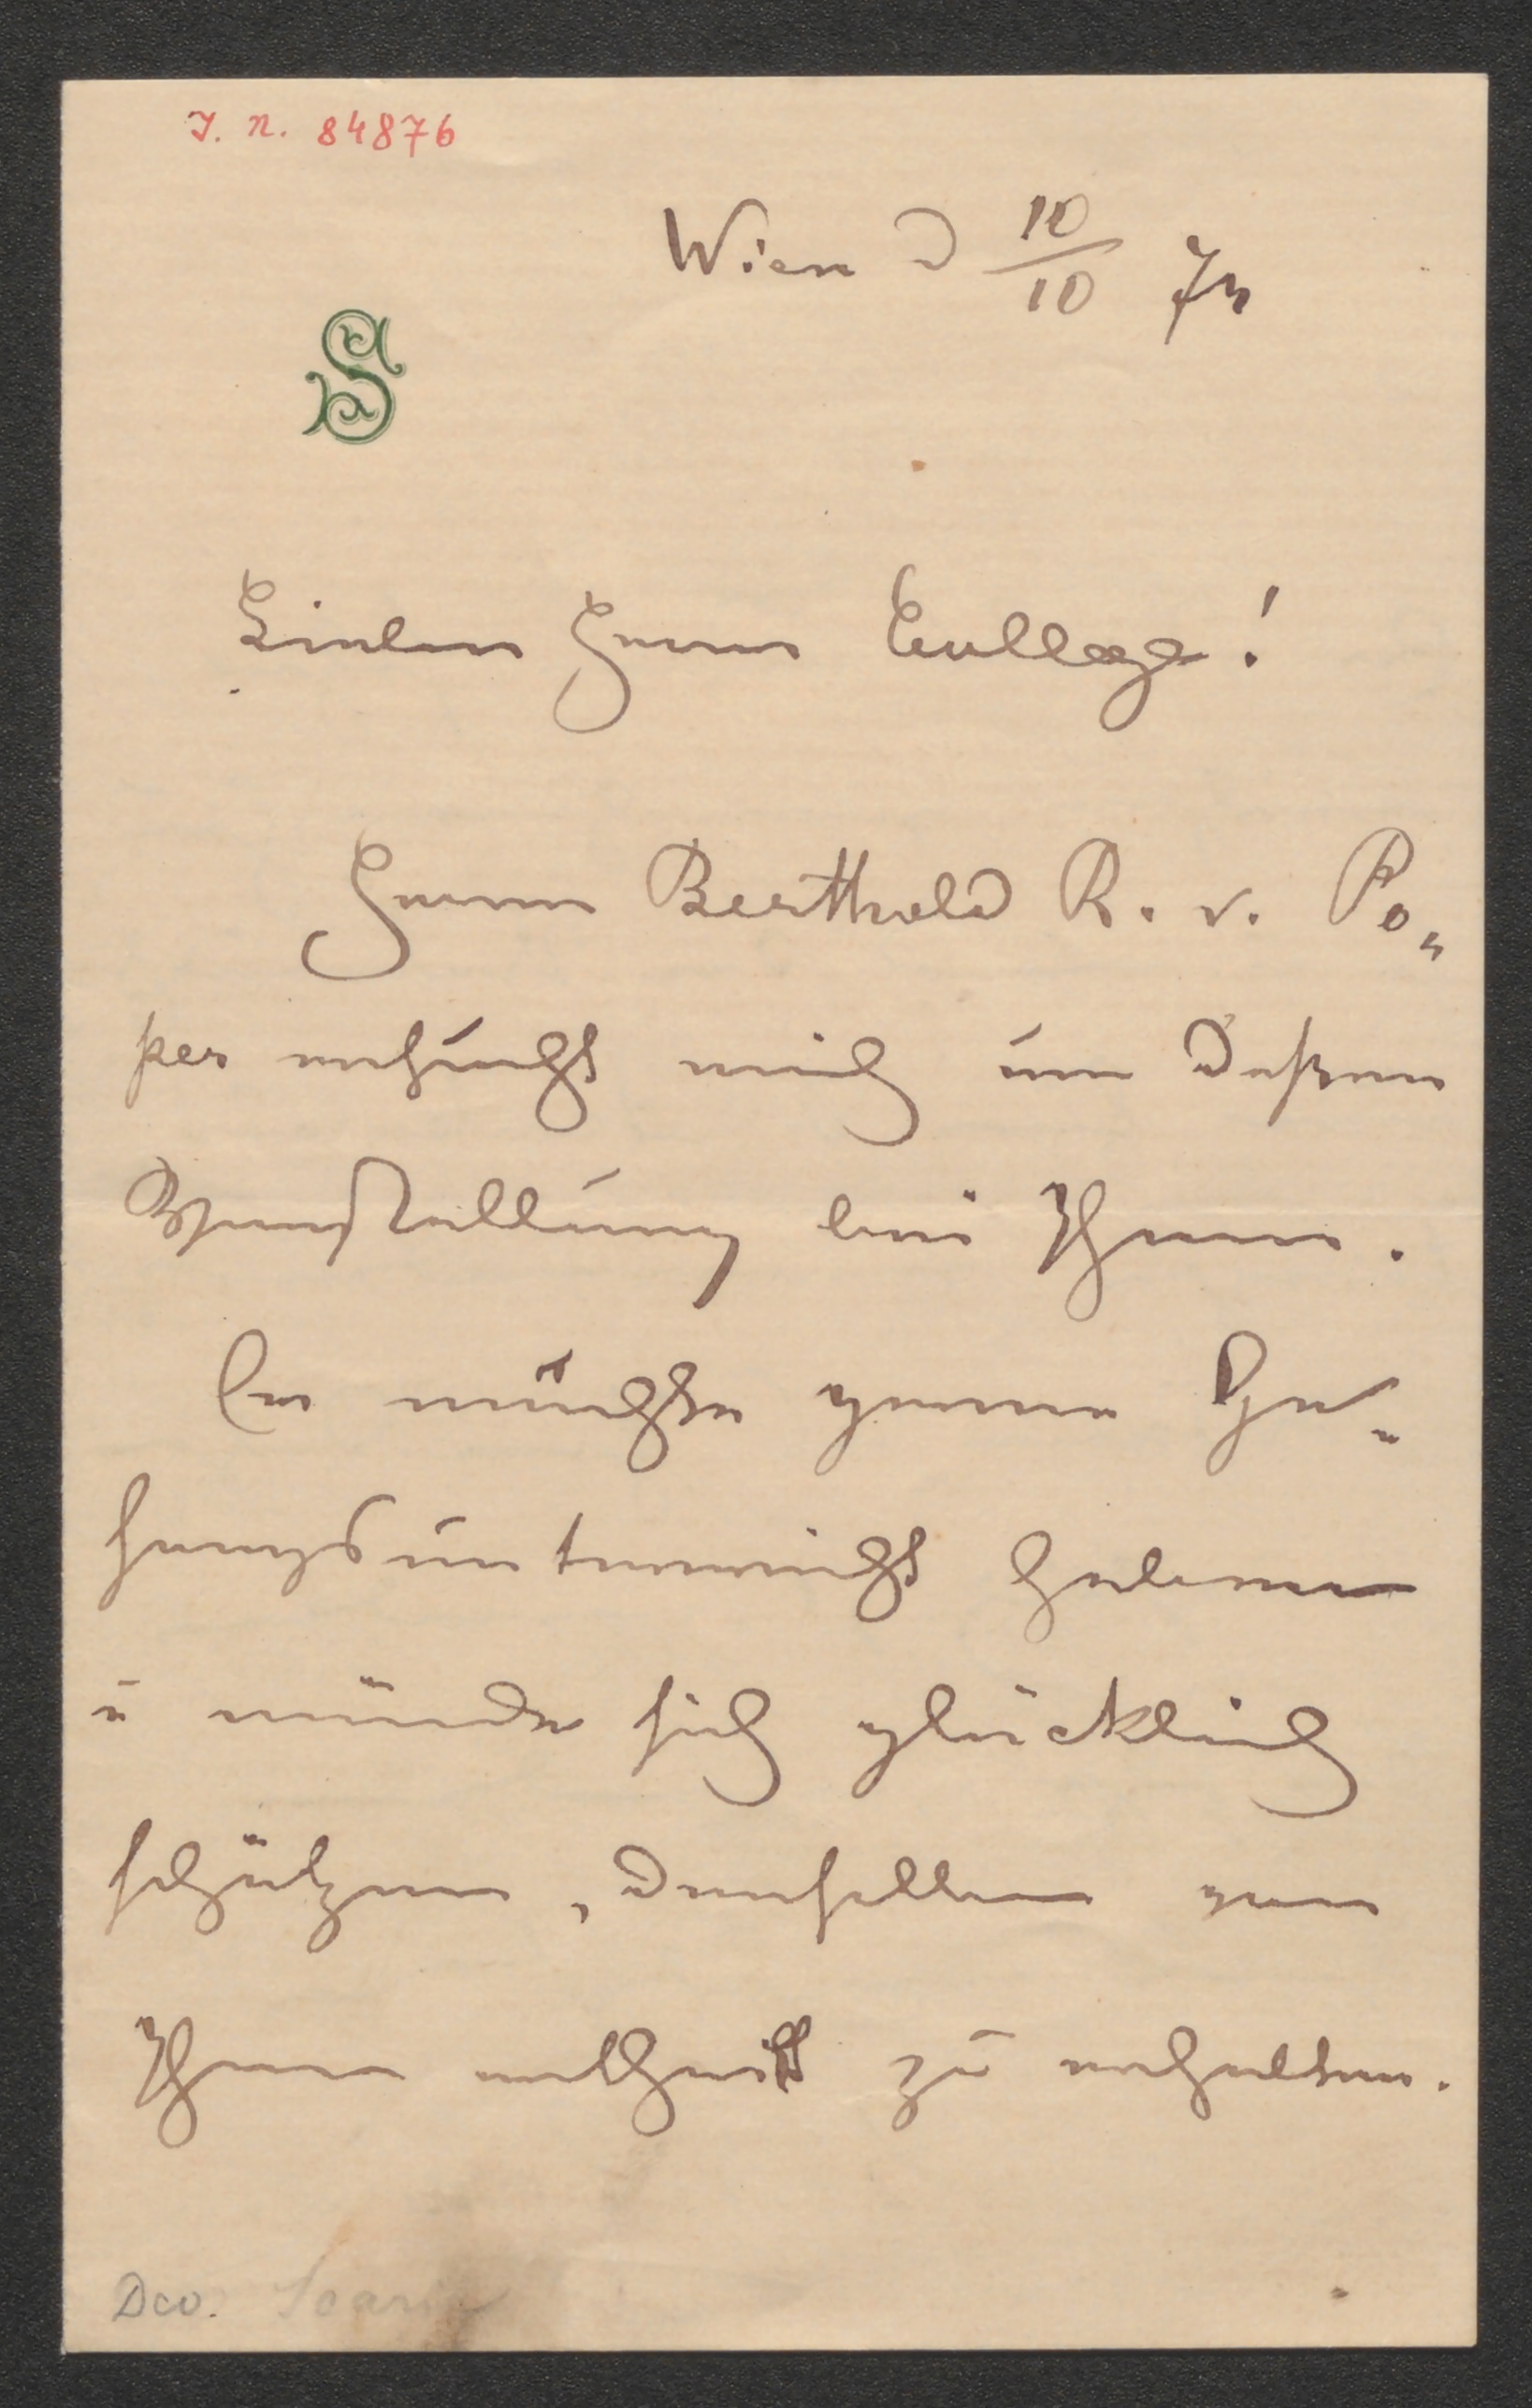 J. N. 84876
Wien d 10/10
S
Lieber Herr College!
Herr Berthold R. v. Po„
per ersucht mich um deßen
Vorstellung bei Ihnen.
Er möchte gerne Ge„
sangsunterricht haben
u würde sich glücklich
schätzen, denselben von
Ihnen ertheilt zu erhalten.
Scaria